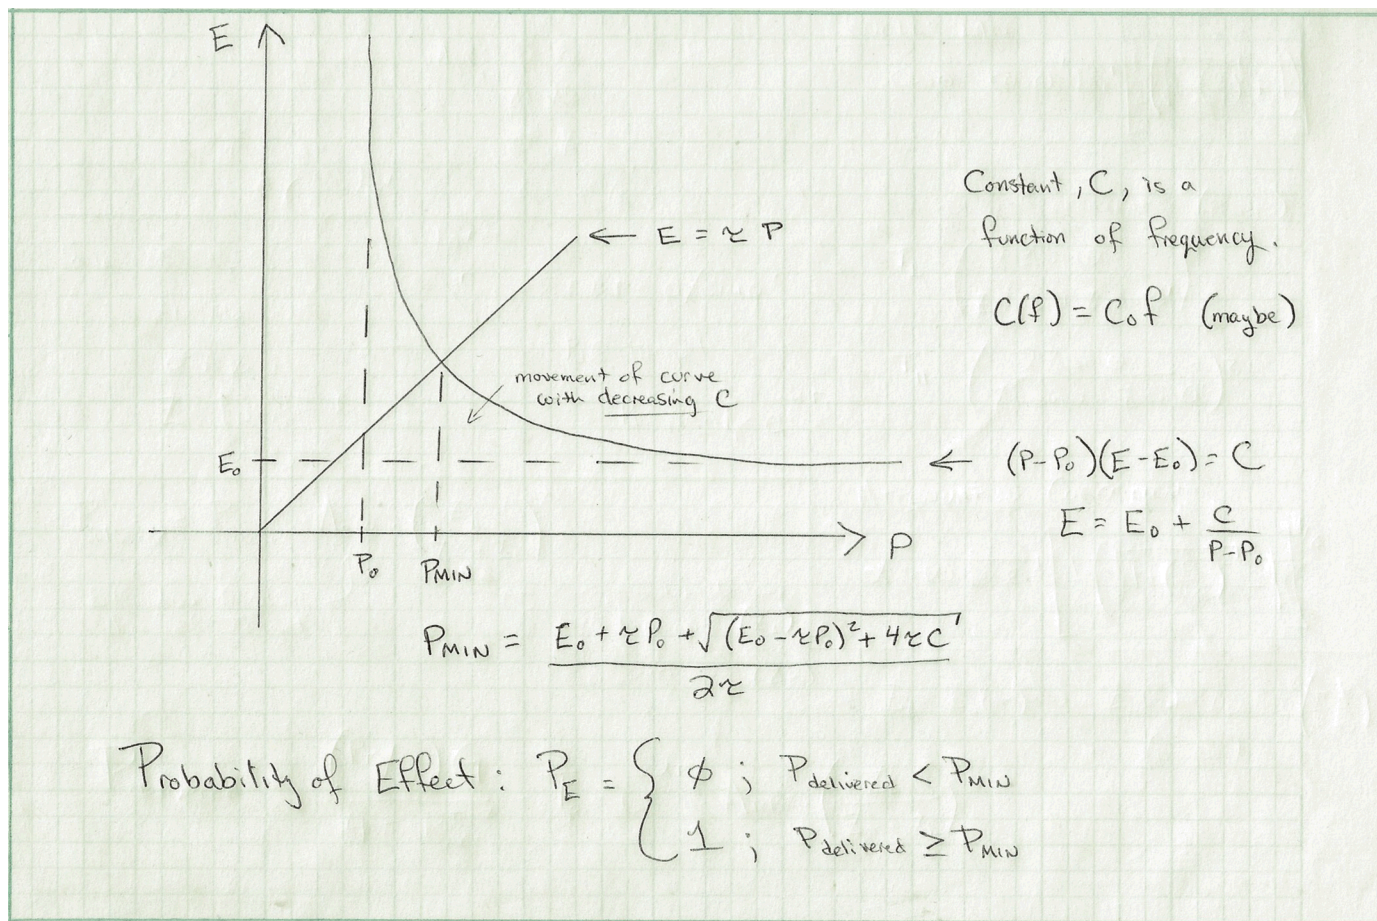 E
E = τ P
Constant, C, is a
function of frequency.
C(f) = C₀f (maybe)
movement of curve
with decreasing C
E₀
(P-P₀)(E-E₀) = C
E = E₀ + C/(P-P₀)
P
P₀
PMIN
PMIN = (E₀ + τP₀ + √((E₀ - τP₀)² + 4τC)) / 2τ
Probability of Effect: P_E = { ϕ ; Pdelivered < PMIN
1 ; Pdelivered ≥ PMIN